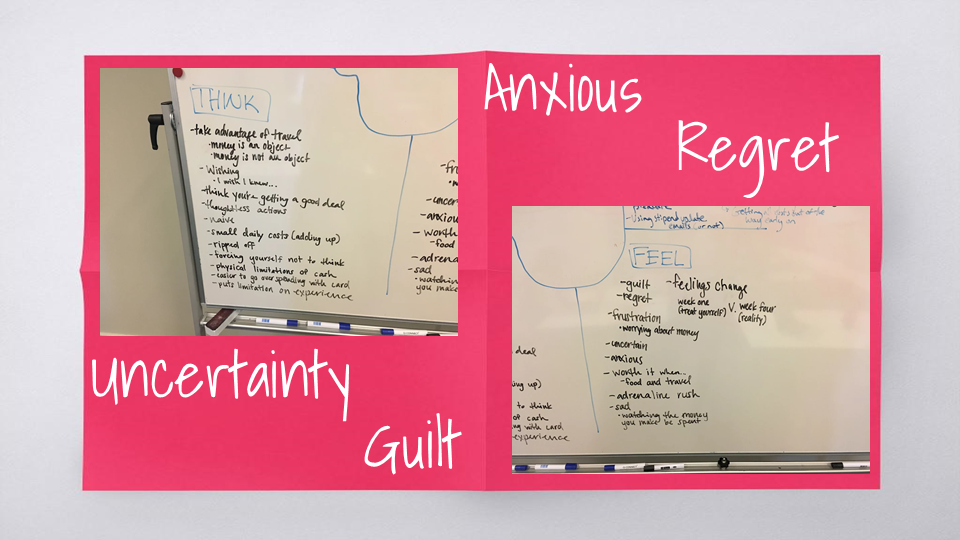 Anxious
Regret
THINK
-take advantage of travel
•money is an object
•money is not an object
-Wishing
•I wish I knew...
-think you're getting a good deal
-thoughtless actions
-naive
-small daily costs (adding up)
-ripped off
-forcing yourself not to think
-physical limitations of cash
-easier to go overspending with card
-puts limitation on experience
-fru
-uncert
-anxiou
-worth
-food
-adrena
-sad
•watchin
you make
Uncertainty
Guilt
pleasure
-Using stipend update
emails (or not)
way early on
FEEL
-guilt
-regret
-frustration
•worrying about money
-uncertain
-anxious
-worth it when...
-food and travel
-adrenaline rush
-sad
•watching the money
you make be spent
-feelings change
week one
(treat yourself)
V.
week four
(reality)
deal
ing up)
to think
of cash
ing with card
experience